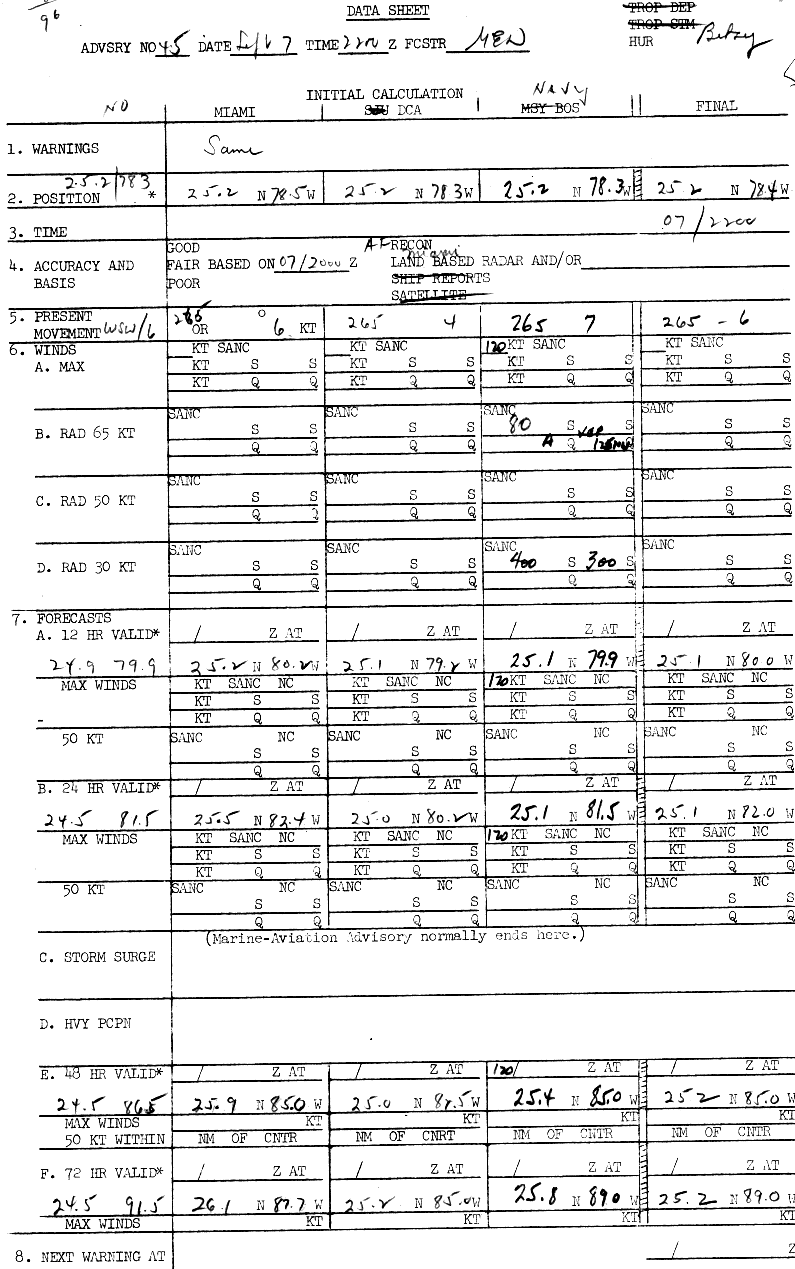 96
DATA SHEET
TROP DEP
TROP STM
HUR Betsy
ADVSRY NO 45 DATE Sept 7 TIME 2200 Z FCSTR
INITIAL CALCULATION
NO MIAMI SJU DCA NAVY MSY BOS FINAL
1. WARNINGS Same
25.2/783
2. POSITION * 25.2 N 78.5 W 25.2 N 783 W 25.2 N 78.3 W 25.2 N 78.4 W
3. TIME 07/2200
GOOD AF RECON
4. ACCURACY AND FAIR BASED ON 07/2000 Z miami LAND BASED RADAR AND/OR
BASIS POOR SHIP REPORTS
SATELLITE
5. PRESENT
MOVEMENT WSW/6 OR ° 6 KT 265 4 265 7 265 - 6
6. WINDS KT SANC KT SANC 120 KT SANC KT SANC
A. MAX KT S S KT S S KT S S KT S S
KT Q Q KT Q Q KT Q Q KT Q Q
SANC SANC SANC SANC
B. RAD 65 KT S S S S 80 S S S S
Q Q Q Q Q Q Q Q
SANC SANC SANC SANC
C. RAD 50 KT S S S S S S S S
Q Q Q Q Q Q Q Q
SANC SANC SANC SANC
D. RAD 30 KT S S S S 400 S 300 S S S
Q Q Q Q Q Q Q Q
7. FORECASTS
A. 12 HR VALID* / Z AT / Z AT / Z AT / Z AT
24.9 79.9 25.2 N 80.2 W 25.1 N 79.2 W 25.1 N 79.9 W 25.1 N 80.0 W
MAX WINDS KT SANC NC KT SANC NC 120 KT SANC NC KT SANC NC
KT S S KT S S KT S S KT S S
KT Q Q KT Q Q KT Q Q KT Q Q
50 KT SANC NC SANC NC SANC NC SANC NC
S S S S S S S S
Q Q Q Q Q Q Q Q
B. 24 HR VALID* / Z AT / Z AT / Z AT / Z AT
24.5 81.5 25.5 N 82.4 W 25.0 N 80.2 W 25.1 N 81.5 W 25.1 N 82.0 W
MAX WINDS KT SANC NC KT SANC NC 120 KT SANC NC KT SANC NC
KT S S KT S S KT S S KT S S
KT Q Q KT Q Q KT Q Q KT Q Q
50 KT SANC NC SANC NC SANC NC SANC NC
S S S S S S S S
Q Q Q Q Q Q Q Q
(Marine-Aviation Advisory normally ends here.)
C. STORM SURGE
D. HVY PCPN
E. 48 HR VALID* / Z AT / Z AT 120/ Z AT / Z AT
24.5 86.5 25.9 N 85.0 W 25.0 N 82.5 W 25.4 N 85.0 W 25.2 N 85.0 W
MAX WINDS KT KT KT KT
50 KT WITHIN NM OF CNTR NM OF CNRT NM OF CNTR NM OF CNTR
F. 72 HR VALID* / Z AT / Z AT / Z AT / Z AT
24.5 91.5 26.1 N 87.7 W 25.2 N 85.0 W 25.8 N 89.0 W 25.2 N 89.0 W
MAX WINDS KT KT KT KT
8. NEXT WARNING AT / Z